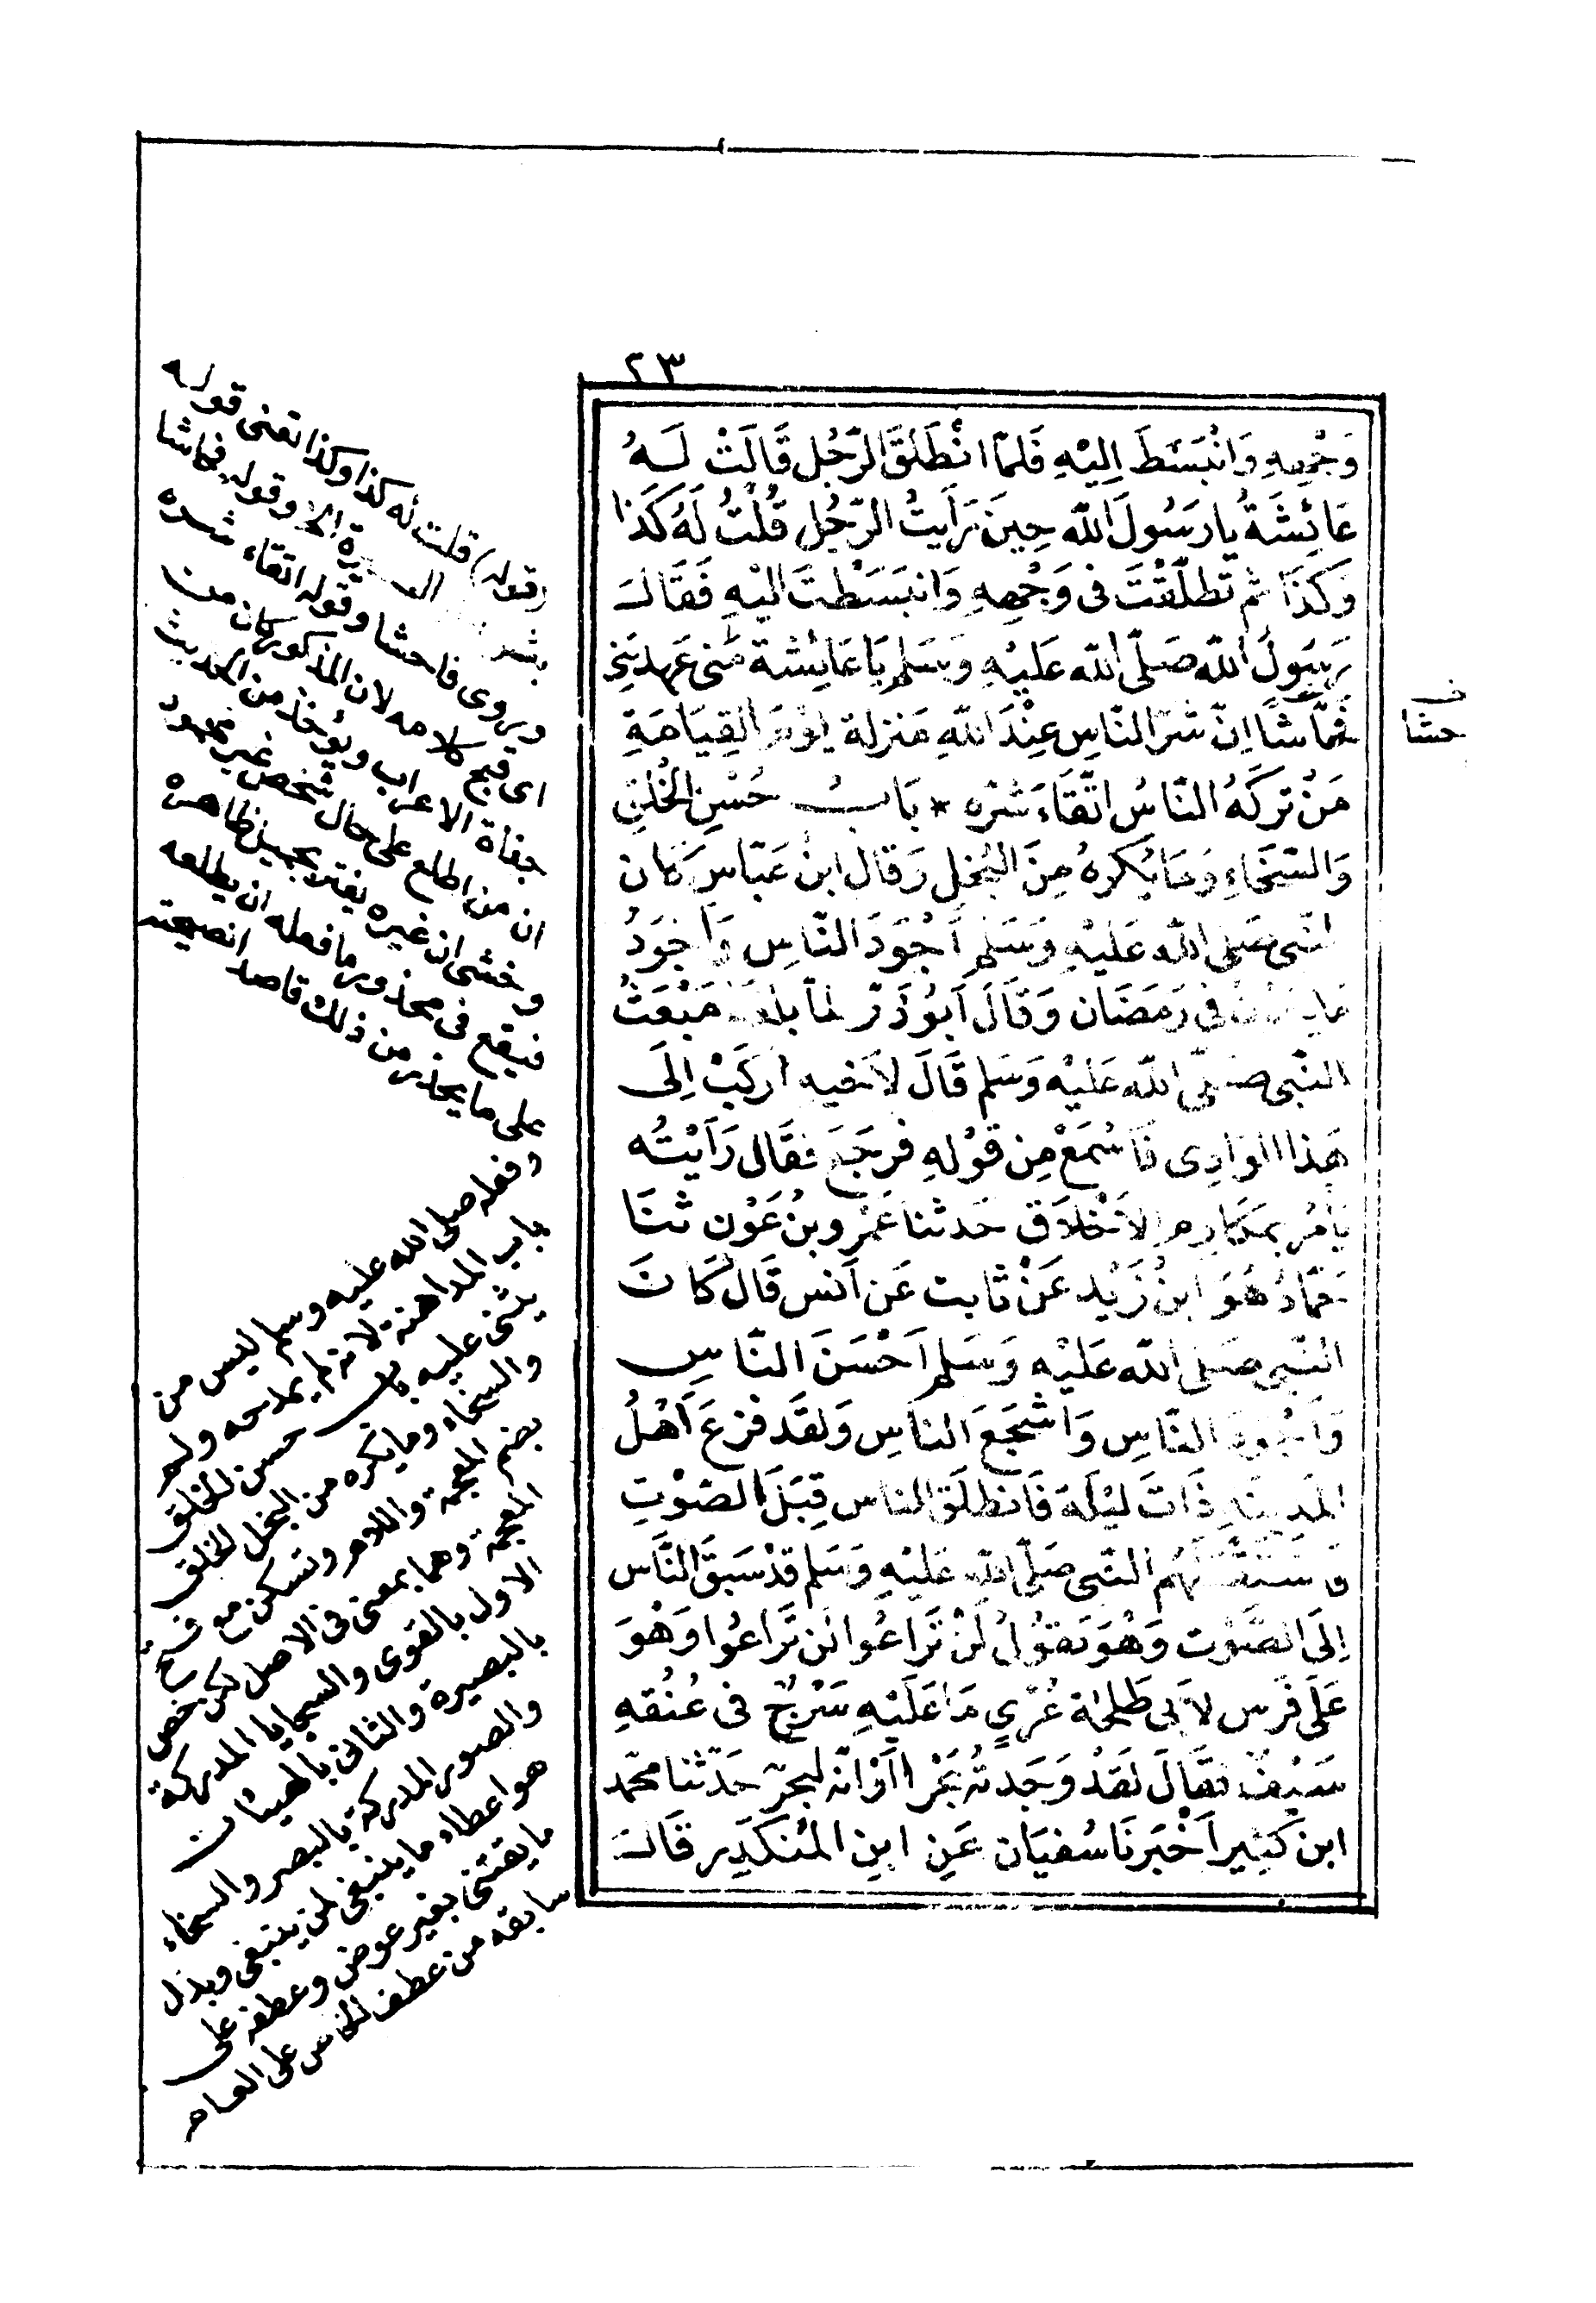 ٢٣
وَجْهِهِ وَانْبَسَطَ اِلَيْهِ فَلَمَّا انْطَلَقَ الرَّجُلُ قَالَتْ لَهُ
عَائِشَةُ يَا رَسُولَ اللّه حِينَ رَأَيْتُ الرَّجُلَ قُلْتُ لَهُ كَذَا
وَكَذَا ثم تَطَلَّقْتَ فى وَجْهِهِ وَانبَسَطْتَ اليْهِ فَقَالَ
رَسُولُ اللّه صَلّى اللّه عَلَيْهِ وَسَلم يَا عَائِشَة مَتى عَهدتِنى
فَحَّاشًا اِنّ شَرّ النّاسِ عِنْدَ اللّهِ مَنزلة يَوْمَ القِيَامَةِ
حشا
مَنْ تَرَكَهُ النّاسُ اتّقَاءَ شَرّه * بَابُ حُسْنِ الخُلُقِ
وَالسَّخَاءِ وَمَا يُكْرهُ مِنَ البُخلِ وَقال ابنُ عَبّاسٍ كان
النّبى صَلى اللّه عَليْهِ وَسَلم أجْوَدَ النّاسِ وَأجْوَدُ
مَا يكون فى رَمَضَان وَقَالَ اَبُو ذَرّ لمّا بلغه مَبْعَثُ
النّبى صَلّى اللّه عَليْه وَسَلم قَالَ لاَخيه اركَبْ اِلَى
هَذا الوَادِى فَاسْمَعْ مِن قَوْلهِ فرجَعَ فقَال رَاَيْتُه
يَأمُر بمكَارِم الاَخْلاَق حَدثنا عَمْرو بنُ عَوْن ثنَا
حَمّاد هُوَ ابنُ زَيْد عَنْ ثابت عَن اَنس قَال كَانَ
النّبى صَلى اللّه عَليْه وَسَلم اَحْسَنَ النّاسِ
وَاَجْوَدَ النّاسِ وَاشْجَعَ النّاسِ وَلقَد فزعَ اَهْلُ
المَدِينَةِ ذَاتَ لَيْلَة فَانطَلَقَ الناس قِبَلَ الصَّوْتِ
فَاسْتَقْبَلَهُم النّبى صَلّى اللّه عَليْهِ وَسَلم قدْ سَبَقَ النَّاس
اِلَى الصَّوْت وَهُوَ يَقُولُ لَنْ تُرَاعُوا لَن تُرَاعُوا وَهْوَ
عَلَى فَرَس لاَبى طَلحَة عُرْيٍ مَا عَلَيْهِ سَرْجٌ فى عُنُقهِ
سَيْفٌ فقَالَ لَقَدْ وَجَدتُه بَحْرا اَوْ انّه لبَحرٌ حَدّثنا محمد
ابن كَثِير اَخْبَرنَا سُفيَان عَنِ ابنِ المُنكَدِر قَالَ
(قوله) قلت له كذا وكذا تعنى قوله
بئس العشيرة الا وقوله فحاشا
ويروى فاحشا وقوله اتقاء شره
اى قبح كلامه لان المذكور كان من
جفاة الاعراب ويؤخذ من الحديث
ان من اطلع على حال شخص غير محمود
وخشى ان غيره يغتر بجميل ظاهره
فيقع فى محذور ما فعله ان يطلعه
على ما يحذر من ذلك قاصدا نصيحته
وفعله صلى الله عليه وسلم ليس من
باب المداهنة لانه لم يمدحه ولم
يثنى عليه باب حسن الخلق
والسخاء وما يكره من البخل الخلق
بضم المعجمة واللام وتسكن مع فتح
المعجمة وهما بمعنى فى الاصل لكن خص
الاول بالقوى والسجايا المدركة
بالبصيرة والثانى بالهيئات
والصور المدركة بالبصر والسخاء
هو اعطاء ما ينبغى لمن ينبغى وبذل
ما يقتنى بغير عوض وعطفه على
سابقه من عطف الخاص على العام